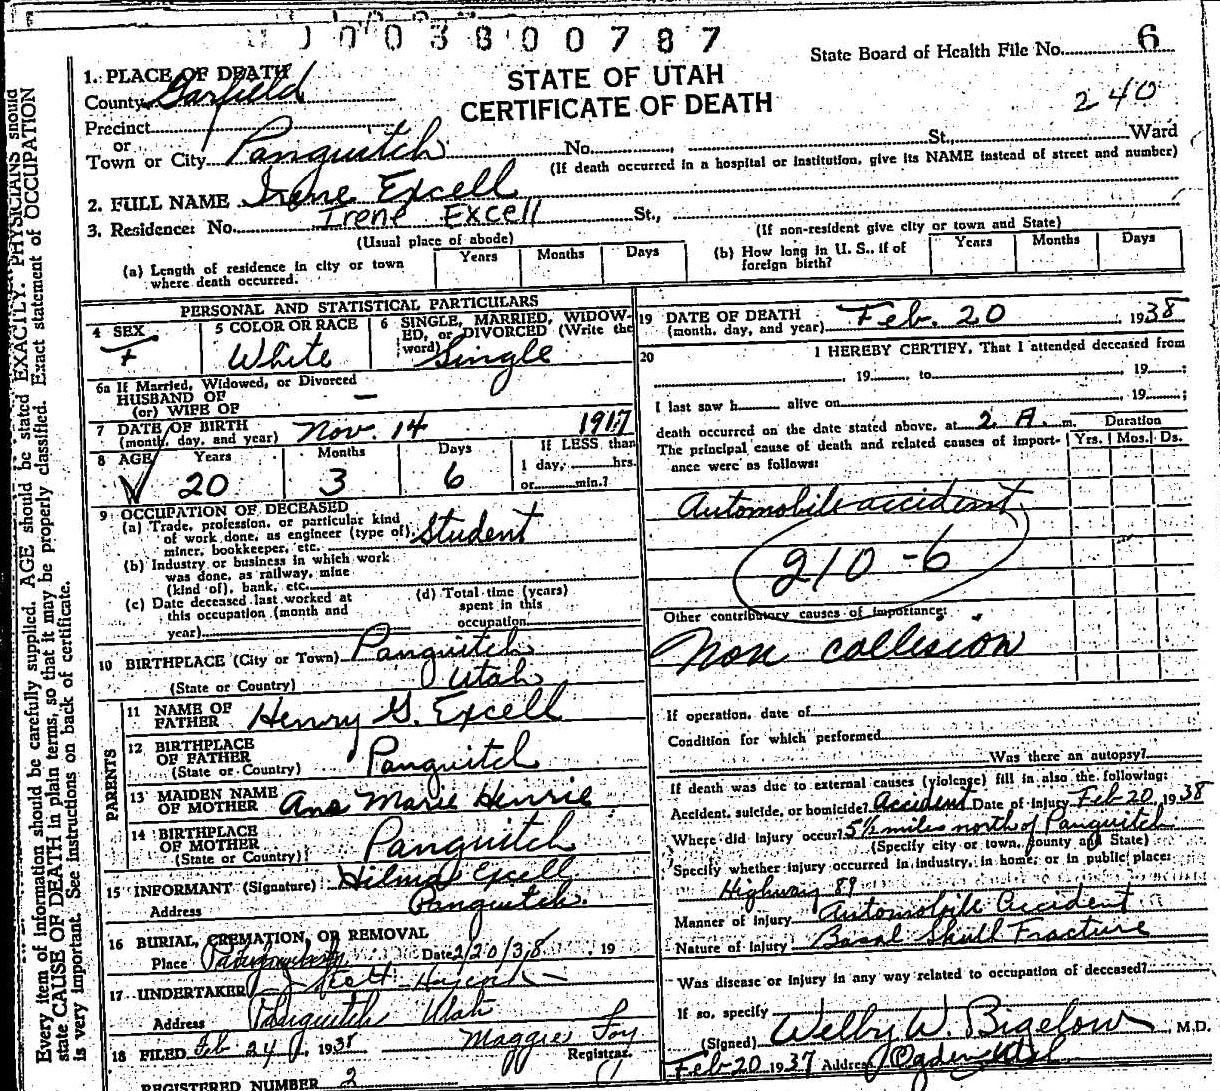 003800787
State Board of Health File No. 6
STATE OF UTAH
CERTIFICATE OF DEATH
240
1. PLACE OF DEATH
County Garfield
Precinct
or
Town or City Panguitch No. St., Ward
(If death occurred in a hospital or institution, give its NAME instead of street and number)
2. FULL NAME Irene Excell
3. Residence: No. Irene Excell St.,
(Usual place of abode)
(If non-resident give city or town and State)
(a) Length of residence in city or town where death occurred.
Years Months Days
(b) How long in U. S., if of foreign birth?
Years Months Days
PERSONAL AND STATISTICAL PARTICULARS
4 SEX F
5 COLOR OR RACE White
6 SINGLE, MARRIED, WIDOWED, or DIVORCED (Write the word) Single
6a If Married, Widowed, or Divorced
HUSBAND OF
(or) WIFE OF —
7 DATE OF BIRTH
(month, day, and year) Nov. 14 1917
8 AGE Years Months Days If LESS than
20 3 6 1 day, hrs.
or min.?
9 OCCUPATION OF DECEASED
(a) Trade, profession, or particular kind
of work done, as engineer (type of) Student
miner, bookkeeper, etc.
(b) Industry or business in which work
was done, as railway, mine
(kind of), bank, etc.
(c) Date deceased last worked at
this occupation (month and
year)
(d) Total time (years)
spent in this
occupation
10 BIRTHPLACE (City or Town) Panguitch
(State or Country) Utah
PARENTS
11 NAME OF
FATHER Henry G. Excell
12 BIRTHPLACE
OF FATHER
(State or Country) Panguitch
13 MAIDEN NAME
OF MOTHER Ana Marie Henrie
14 BIRTHPLACE
OF MOTHER
(State or Country) Panguitch
15 INFORMANT (Signature) Hilma Excell
Address Panguitch.
16 BURIAL, CREMATION, OR REMOVAL
Place Panguitch Date 2/20/38 19
17 UNDERTAKER
Address Panguitch Utah
18 FILED Feb 24 1938 Maggie Foy
Registrar.
REGISTERED NUMBER 2
19 DATE OF DEATH
(month, day, and year) Feb. 20 1938
20 I HEREBY CERTIFY, That I attended deceased from
, 19 to 19 ;
I last saw h alive on , 19 ;
death occurred on the date stated above, at 2 A. m.
Duration
Yrs. Mos. Ds.
The principal cause of death and related causes of importance were as follows:
Automobile accident
210-6
Other contributory causes of importance:
Non collision
If operation, date of
Condition for which performed
Was there an autopsy?
If death was due to external causes (violence) fill in also the following:
Accident, suicide, or homicide? Accident Date of injury Feb 20, 1938
Where did injury occur? 5½ miles north of Panguitch
(Specify city or town, county and State)
Specify whether injury occurred in industry, in home, or in public place:
Highway 89
Manner of injury Automobile Accident
Nature of injury Basal Skull Fracture
Was disease or injury in any way related to occupation of deceased?
If so, specify
(Signed) Welby W. Bigelow, M.D.
Feb 20 1937 Address Ogden Utah
Every item of information should be carefully supplied. AGE should be stated EXACTLY. PHYSICIANS should
state CAUSE OF DEATH in plain terms, so that it may be properly classified. Exact statement of OCCUPATION
is very important. See instructions on back of certificate.